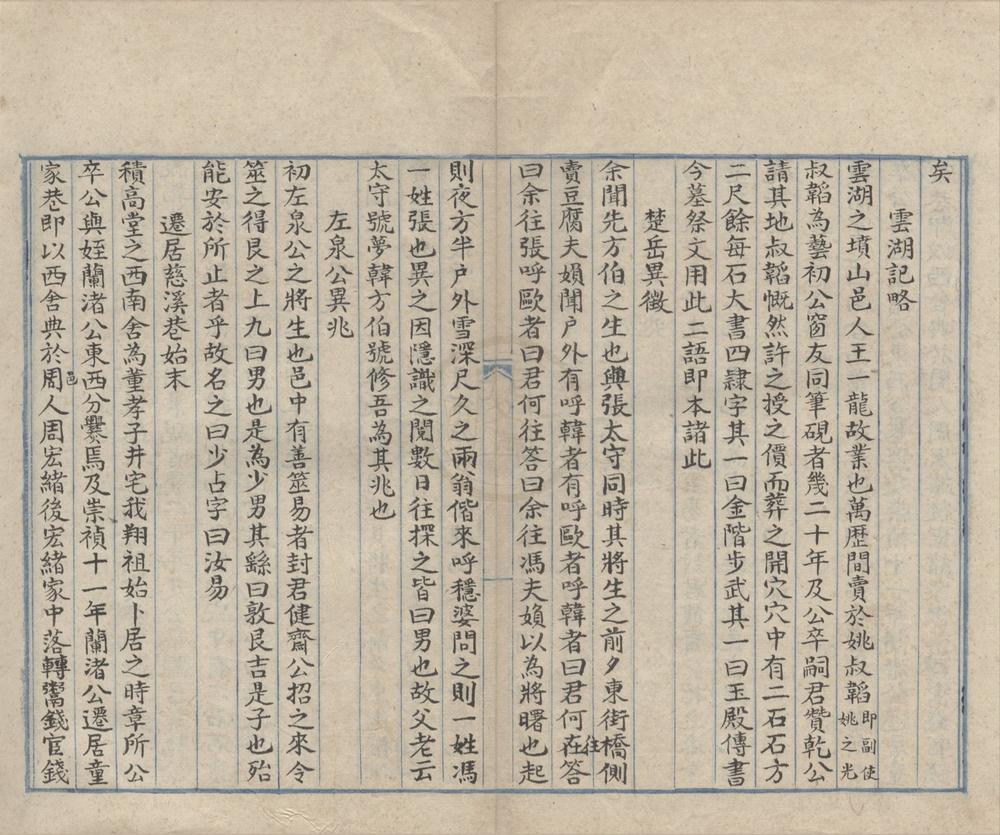 矣
雲湖記略
雲湖之墳山邑人王一龍故業也萬歷間賣於姚叔韜即副使姚之光
叔韜為藝初公窗友同筆硯者幾二十年及公卒嗣君贊乾公
請其地叔韜慨然許之授之價而葬之開穴穴中有二石石方
二尺餘每石大書四隸字其一曰金階步武其一曰玉殿傳書
今墓祭文用此二語即本諸此
楚岳異徵
余聞先方伯之生也與張太守同時其將生之前夕東街橋側
賣豆腐夫媍聞戶外有呼韓者有呼歐者呼韓者曰君何在往答
曰余往張呼歐者曰君何往答曰余往馮夫媍以為將曙也起
則夜方半戶外雪深尺久之兩翁偕來呼穩婆問之則一姓馮
一姓張也異之因隱識之閱數日往探之皆曰男也故父老云
太守號夢韓方伯號修吾為其兆也
左泉公異兆
初左泉公之將生也邑中有善筮易者封君健齋公招之來令
筮之得艮之上九曰男也是為少男其繇曰敦艮吉是子也殆
能安於所止者乎故名之曰少占字曰汝易
遷居慈溪巷始末
積高堂之西南舍為董孝子井宅我翔祖始卜居之時章所公
卒公與姪蘭渚公東西分爨焉及崇禎十一年蘭渚公遷居童
家巷即以西舍典於周邑人周宏緒後宏緒家中落轉鬻錢宦錢